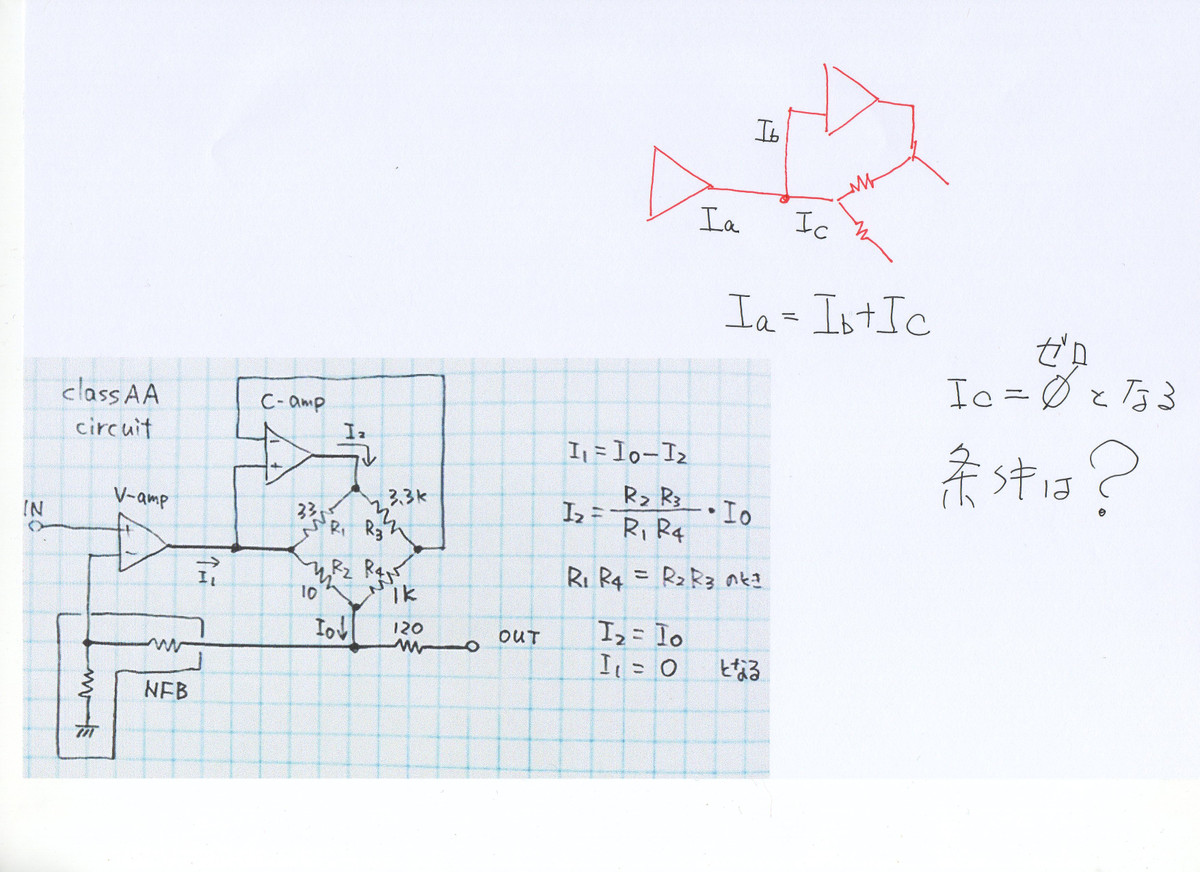 Ib
Ia
Ic
Ia = Ib+Ic
ゼロ
Ic = 0 となる
条件は?
class AA
circuit
C-amp
I2
V-amp
IN
33
R1
3.3K
R3
R2
10
R4
1K
I1
I0↓
120
OUT
NFB
I1 = I0−I2
I2 = R2 R3 / R1 R4 ・I0
R1 R4 = R2 R3 のとき
I2 = I0
I1 = 0 となる